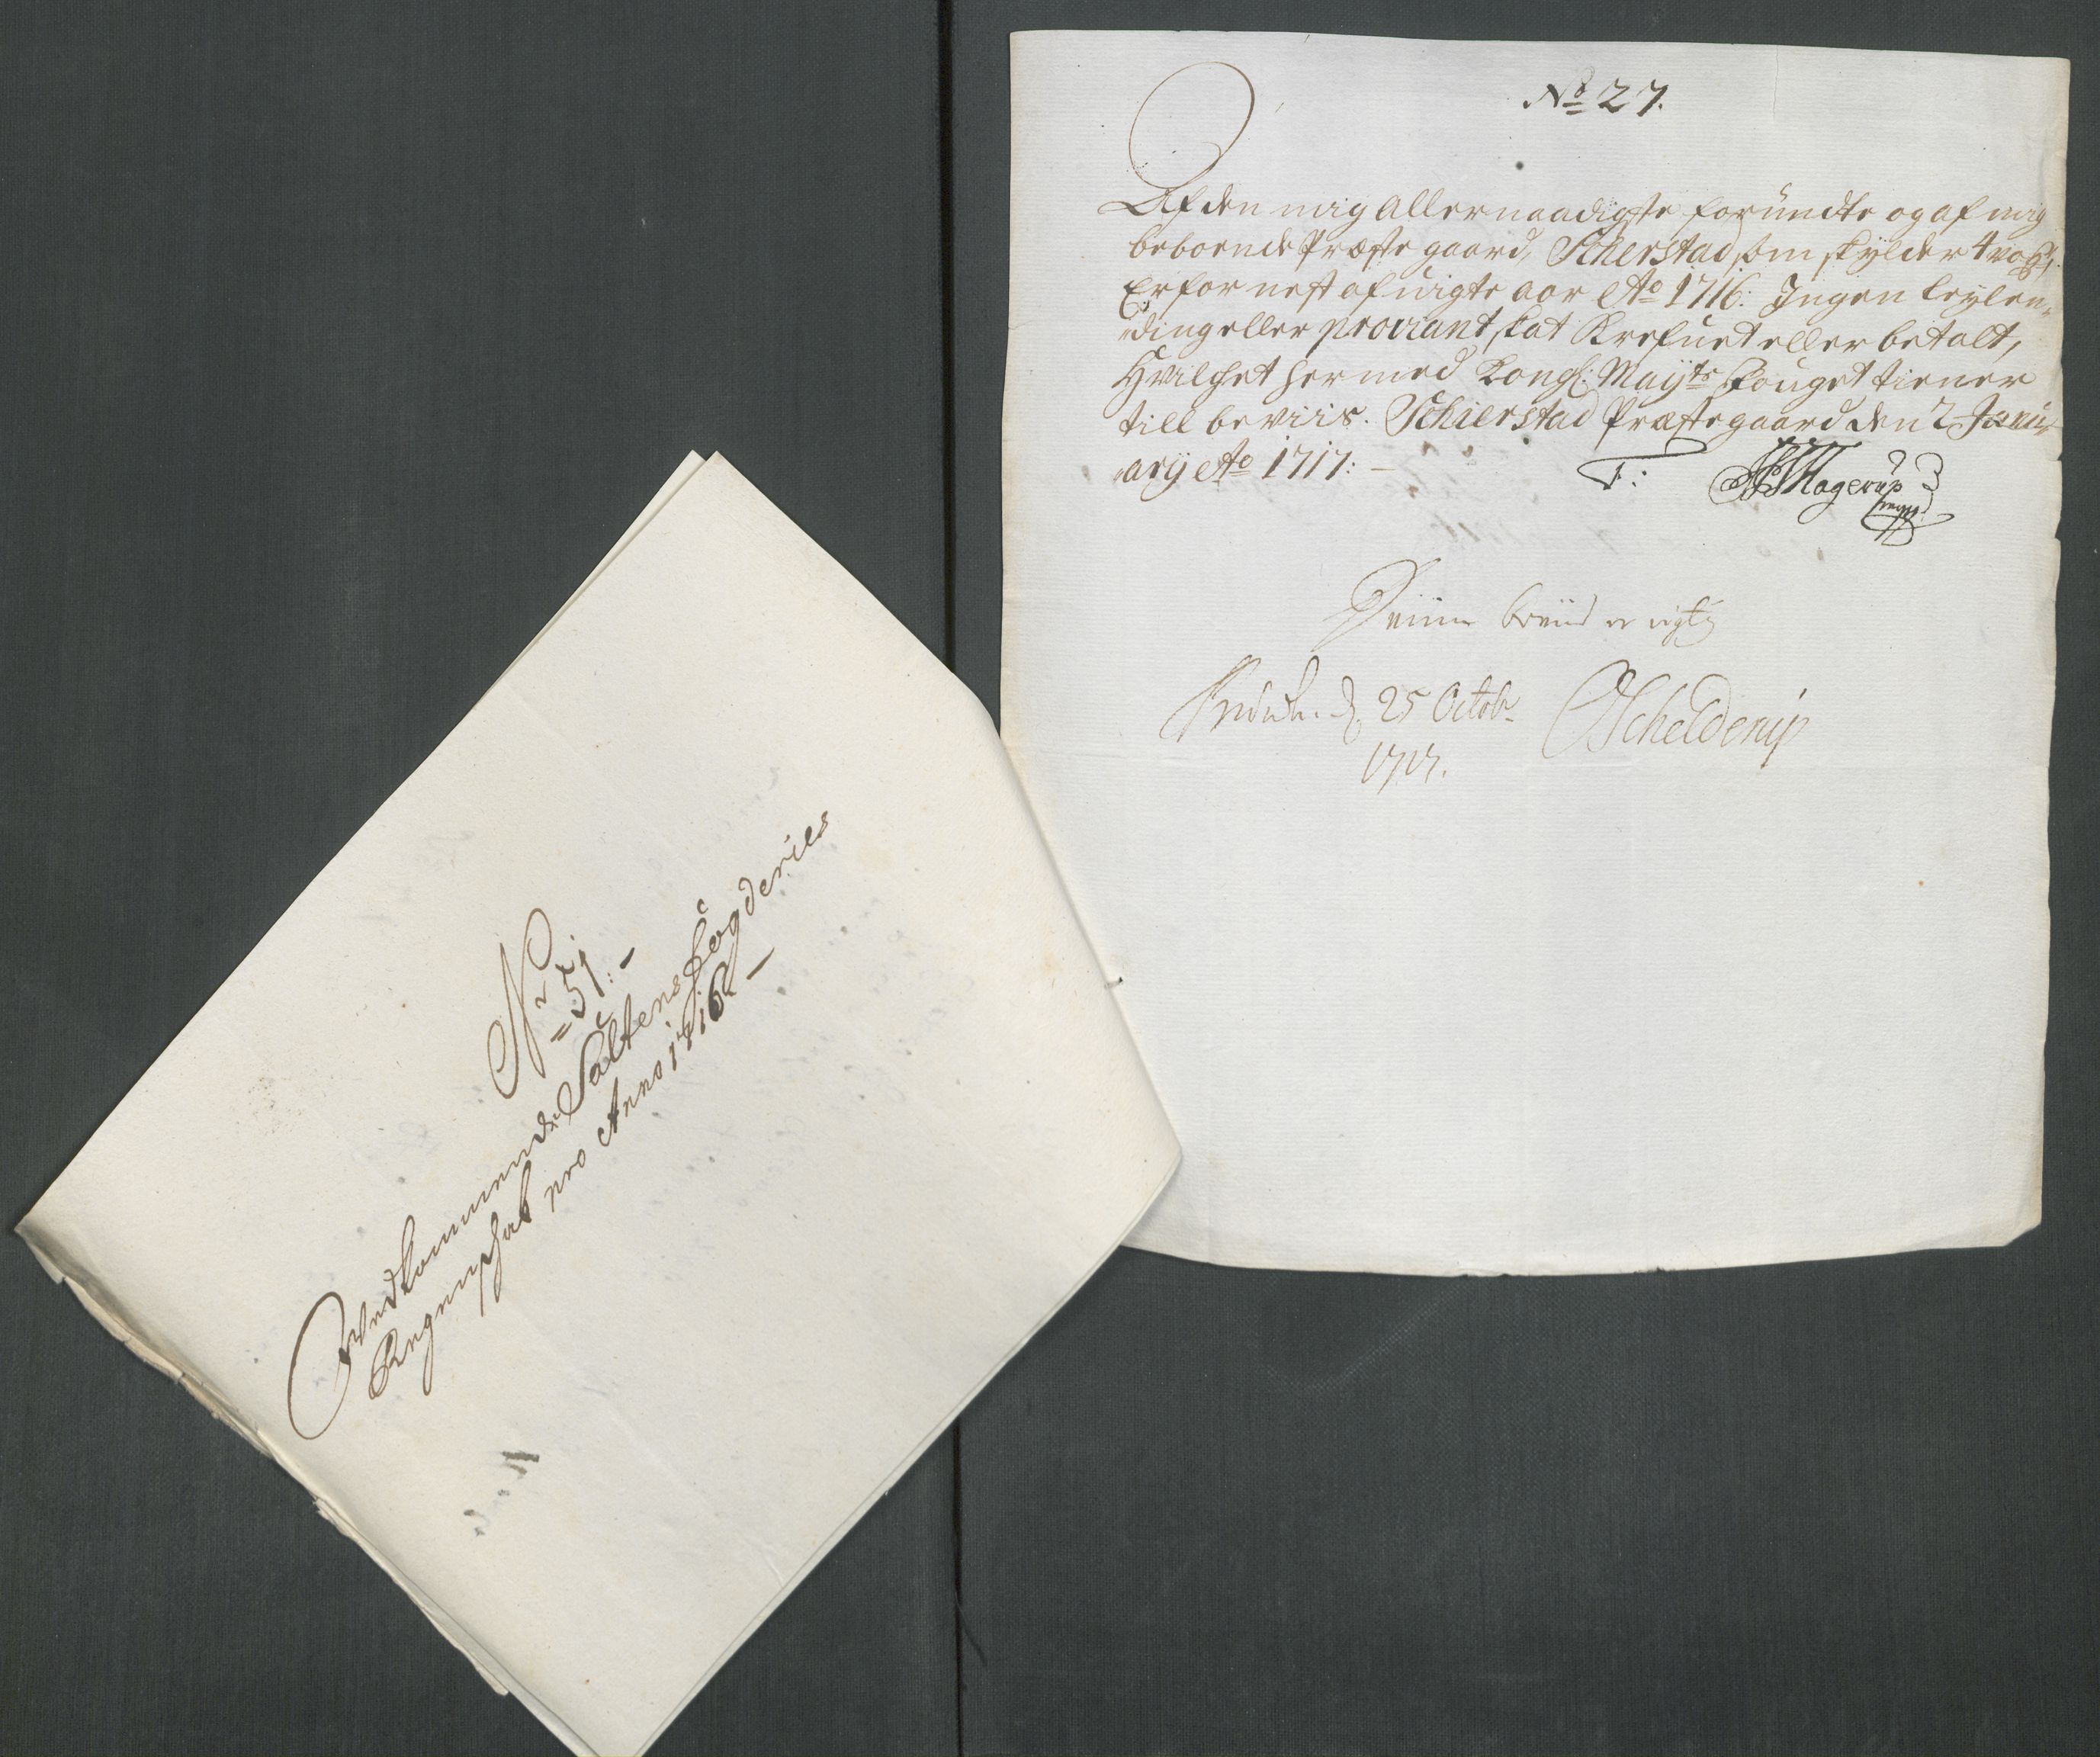 No 27.
Af den mig allernaadigste forundte og af mig
beboende Præste gaard, Scherstad som skylder 4 wog,
Er for nest afvigte aar Ao 1716: Ingen leÿlen-
ding eller proviant skat Krefuet eller betalt,
Hvilchet hermed Kongl: Mayts Fouget tiener
till beviis. Schierstad Præstegaard den 2 Janu-
arij Ao 1717: -
HMagerup
mpp
Denne beviis er rigtig
d. 25 Octobr
1717.
Schelderup
Nr 51: -
Vedkommende Saltens fogderies
Regenschab pro Anno 1716 -